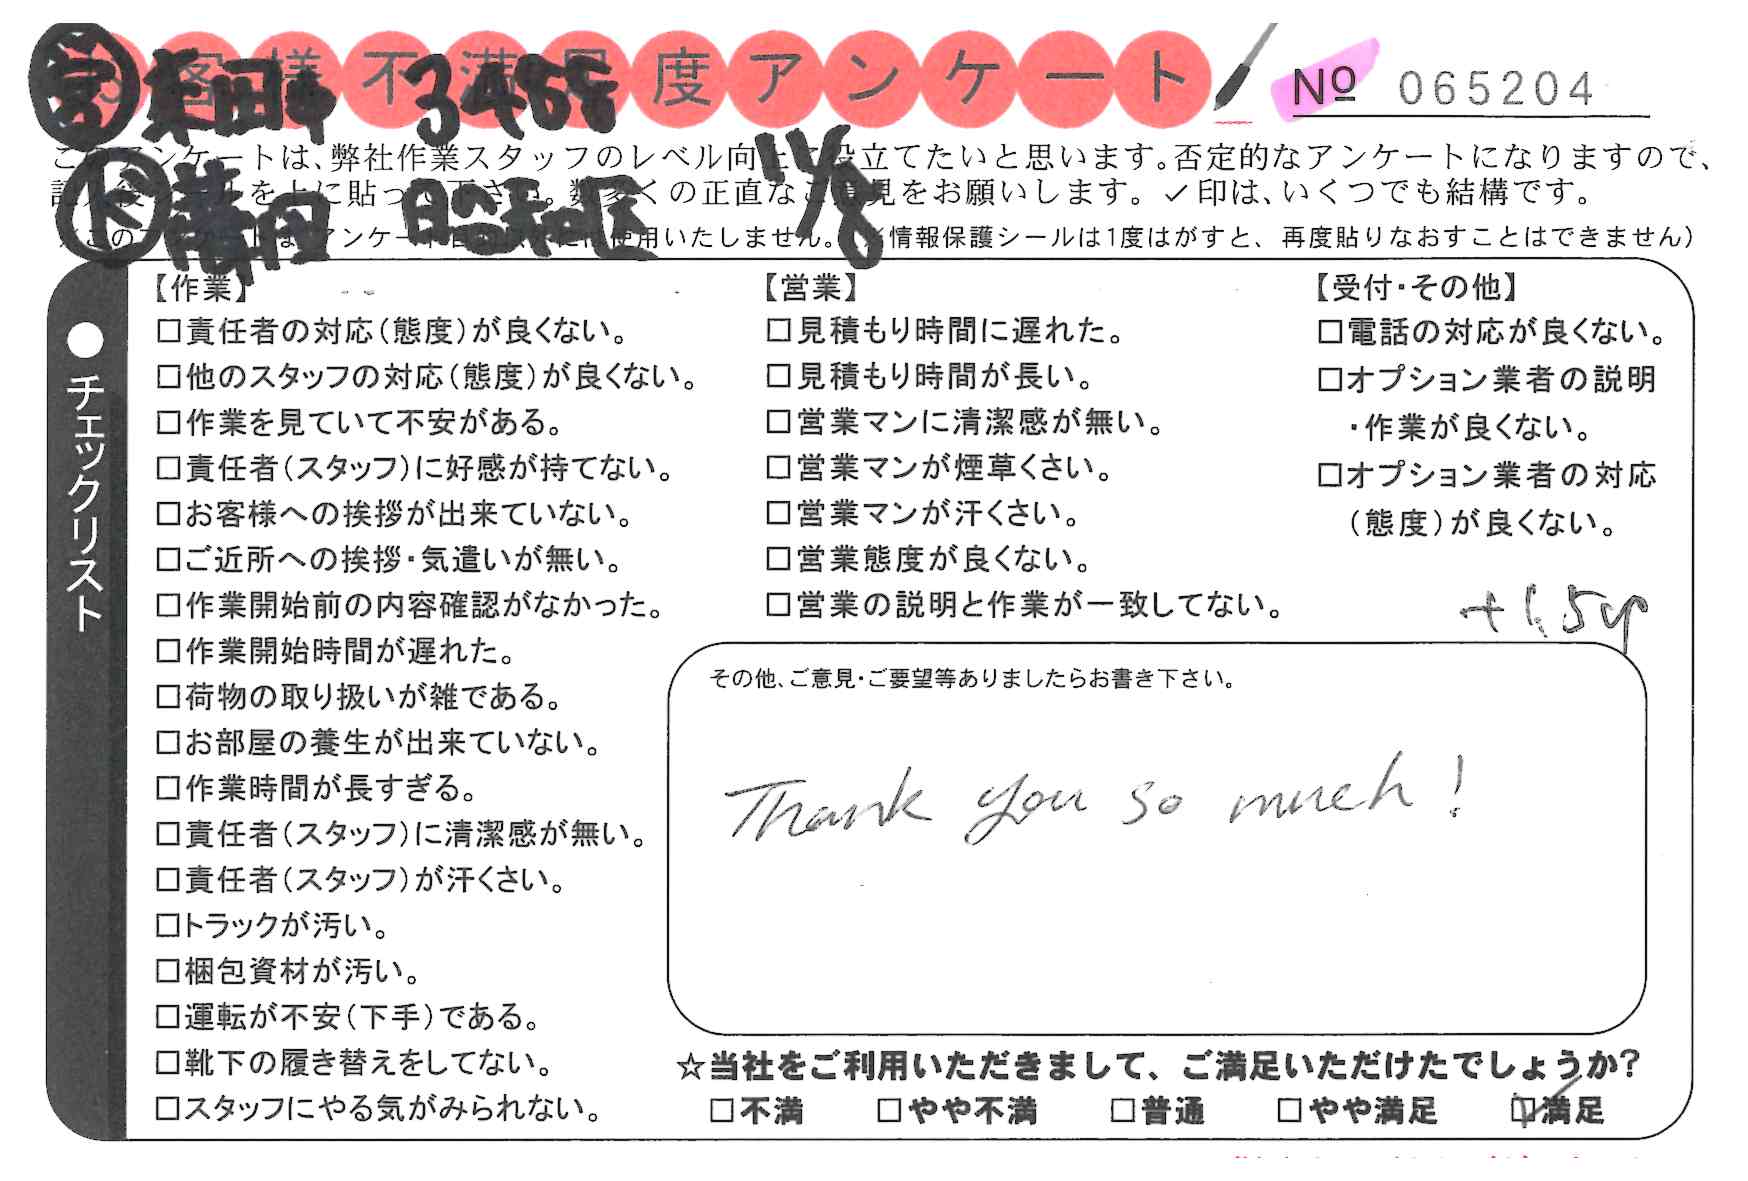 お客様不満足度アンケート
№ 065204
3455
11/8
昭和区
このアンケートは、弊社作業スタッフのレベル向上に役立てたいと思います。否定的なアンケートになりますので、
記入後シールを上に貼って下さい。数多くの正直なご意見をお願いします。✓印は、いくつでも結構です。
使用いたしません。 情報保護シールは1度はがすと、再度貼りなおすことはできません)
●チェックリスト
【作業】
□責任者の対応(態度)が良くない。
□他のスタッフの対応(態度)が良くない。
□作業を見ていて不安がある。
□責任者(スタッフ)に好感が持てない。
□お客様への挨拶が出来ていない。
□ご近所への挨拶・気遣いが無い。
□作業開始前の内容確認がなかった。
□作業開始時間が遅れた。
□荷物の取り扱いが雑である。
□お部屋の養生が出来ていない。
□作業時間が長すぎる。
□責任者(スタッフ)に清潔感が無い。
□責任者(スタッフ)が汗くさい。
□トラックが汚い。
□梱包資材が汚い。
□運転が不安(下手)である。
□靴下の履き替えをしてない。
□スタッフにやる気がみられない。
【営業】
□見積もり時間に遅れた。
□見積もり時間が長い。
□営業マンに清潔感が無い。
□営業マンが煙草くさい。
□営業マンが汗くさい。
□営業態度が良くない。
□営業の説明と作業が一致してない。
【受付・その他】
□電話の対応が良くない。
□オプション業者の説明
・作業が良くない。
□オプション業者の対応
(態度)が良くない。
その他、ご意見・ご要望等ありましたらお書き下さい。
Thank you so much!
☆当社をご利用いただきまして、ご満足いただけたでしょうか?
□不満 □やや不満 □普通 □やや満足 ☑満足